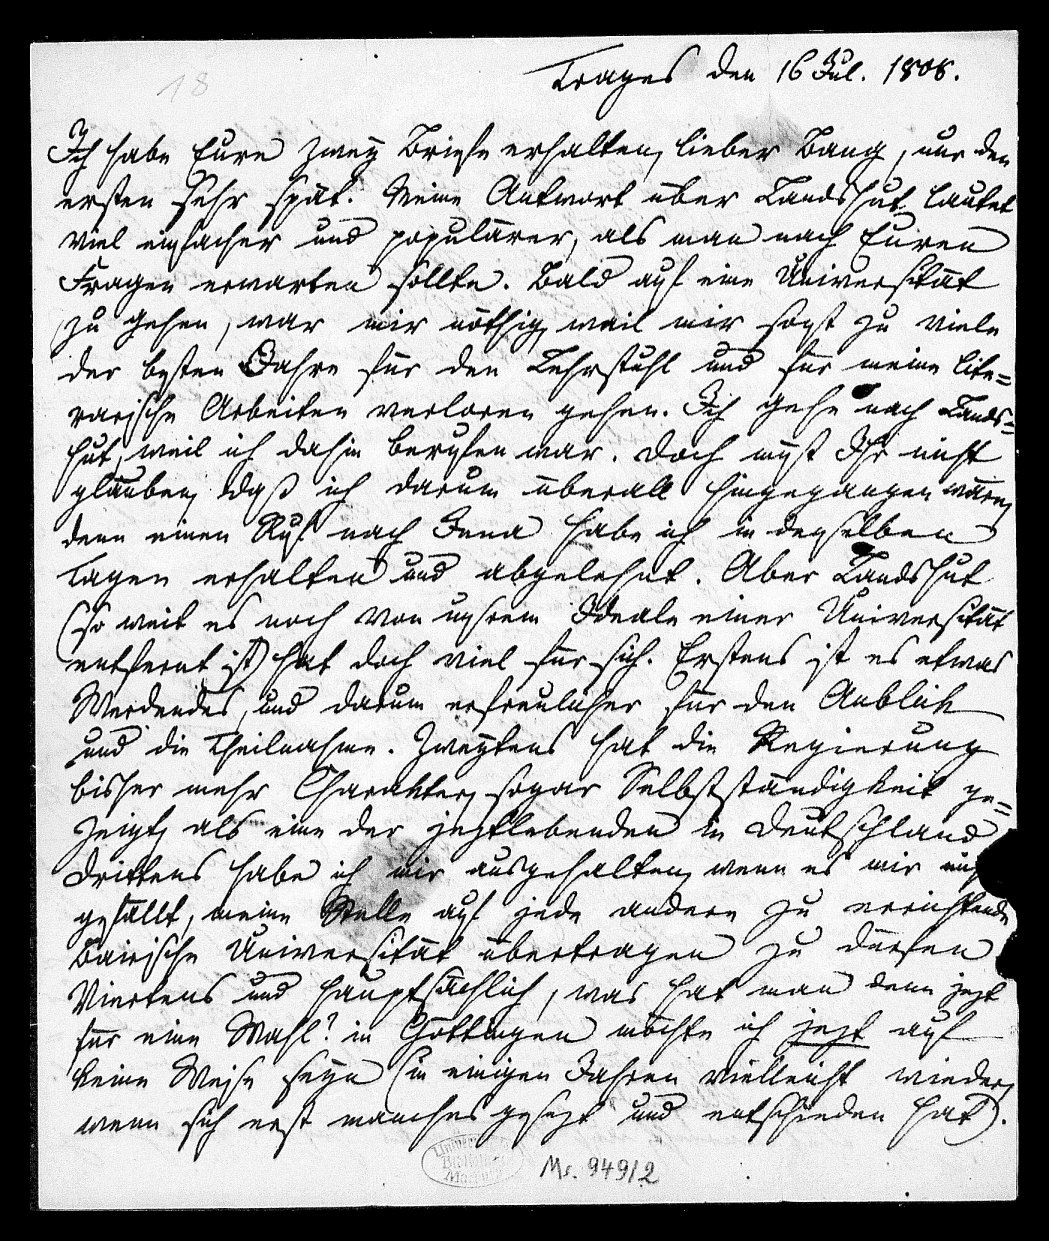 18
Trages den 16 Jul. 1808.
Ich habe Eure zwey Briefe erhalten, lieber Bang, nur den
ersten sehr spät. Meine Antwort über Landshut lautet
viel einfacher und populärer, als man nach Euren
Fragen erwarten sollte. Bald auf eine Universität
zu gehen, war mir nöthig, weil mir sonst zu viele
der besten Jahre für den Lehrstuhl und für meine lite=
rarische Arbeiten verloren gehen. Ich gehe nach Lands=
hut, weil ich dahin berufen war. Doch müßt Ihr nicht
glauben, daß ich darum überall hingegangen wäre,
denn einen Ruf nach Jena habe ich in denselben
Tagen erhalten und abgelehnt. Aber Landshut
(so weit es noch von unsrem Ideale einer Universität
entfernt ist) hat doch viel für sich. Erstens ist es etwas
Werdendes, und darum erfreulicher für den Anblick
und die Theilnahme. Zweytens hat die Regierung
bisher mehr Charakter, sogar Selbstständigkeit ge=
zeigt, als eine der jeztlebenden in Deutschland
Drittens habe ich mir ausgehalten, wenn es mir
gefällt, meine Stelle auf jede andere zu errichtende
Bairische Universität übertragen zu dürfen
Viertens und hauptsächlich, was hat man denn jezt
für eine Wahl? in Göttingen möchte ich jezt auf
keine Weise seyn (in einigen Jahren vielleicht wieder,
wenn sich erst manches gesezt und entschieden hat).
Ms. 949/2